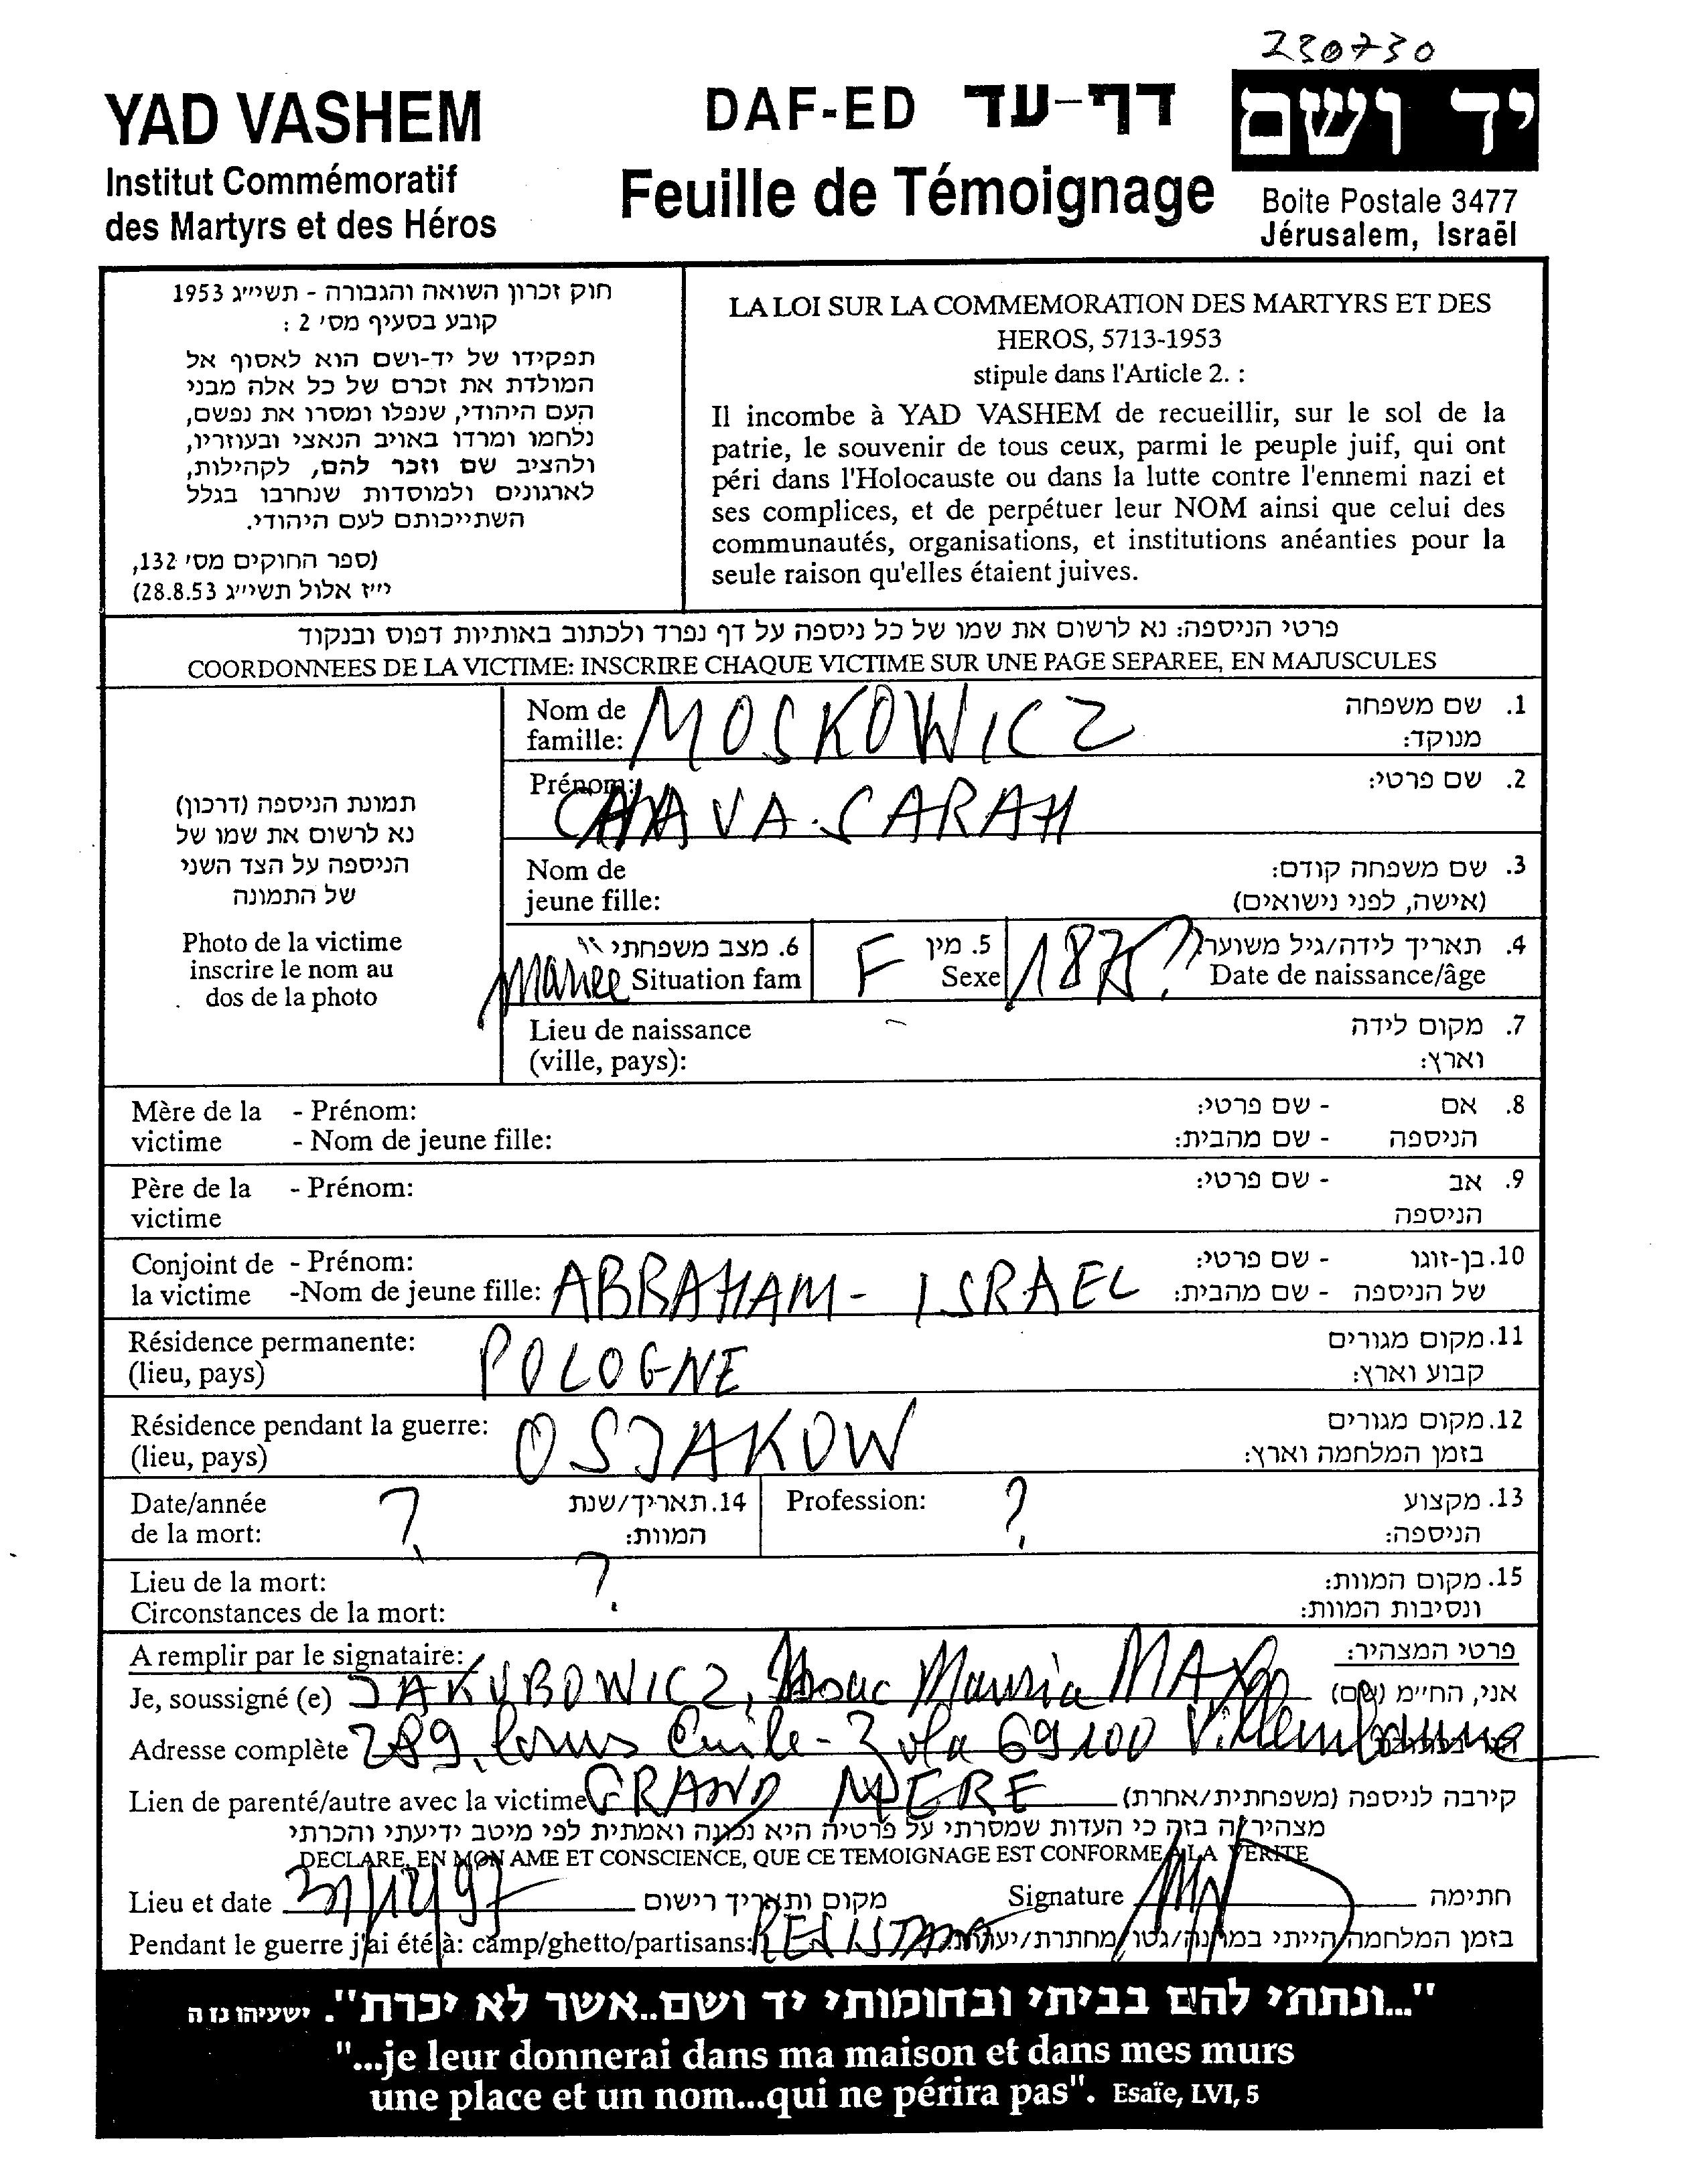 230730
YAD VASHEM
Institut Commémoratif
des Martyrs et des Héros
DAF-ED דף-עד
Feuille de Témoignage
יד ושם
Boite Postale 3477
Jérusalem, Israël
חוק זכרון השואה והגבורה - תשי״ג 1953
קובע בסעיף מס׳ 2 :
תפקידו של יד-ושם הוא לאסוף אל
המולדת את זכרם של כל אלה מבני
העם היהודי, שנפלו ומסרו את נפשם,
נלחמו ומרדו באויב הנאצי ובעוזריו,
ולהציב שם וזכר להם, לקהילות,
לארגונים ולמוסדות שנחרבו בגלל
השתייכותם לעם היהודי.
(ספר החוקים מס׳ 132,
י״ז אלול תשי״ג 28.8.53)
LA LOI SUR LA COMMEMORATION DES MARTYRS ET DES
HEROS, 5713-1953
stipule dans l'Article 2. :
Il incombe à YAD VASHEM de recueillir, sur le sol de la
patrie, le souvenir de tous ceux, parmi le peuple juif, qui ont
péri dans l'Holocauste ou dans la lutte contre l'ennemi nazi et
ses complices, et de perpétuer leur NOM ainsi que celui des
communautés, organisations, et institutions anéanties pour la
seule raison qu'elles étaient juives.
פרטי הניספה: נא לרשום את שמו של כל ניספה על דף נפרד ולכתוב באותיות דפוס ובנקוד
COORDONNEES DE LA VICTIME: INSCRIRE CHAQUE VICTIME SUR UNE PAGE SEPAREE, EN MAJUSCULES
תמונת הניספה (דרכון)
נא לרשום את שמו של
הניספה על הצד השני
של התמונה
Photo de la victime
inscrire le nom au
dos de la photo
Nom de MOSKOWICZ 1. שם משפחה
famille: מנוקד:
Prénom: CHAVA SARAH 2. שם פרטי:
Nom de 3. שם משפחה קודם:
jeune fille: (אישה, לפני נישואים)
6. מצב משפחתי 5. מין 4. תאריך לידה/גיל משוער
mariée Situation fam F Sexe 1875? Date de naissance/âge
Lieu de naissance 7. מקום לידה
(ville, pays): וארץ:
Mère de la - Prénom: - שם פרטי: 8. אם
victime - Nom de jeune fille: - שם מהבית: הניספה
Père de la - Prénom: - שם פרטי: 9. אב
victime הניספה
Conjoint de - Prénom: - שם פרטי: 10. בן-זוגו
la victime -Nom de jeune fille: ABRAHAM - ISRAEL - שם מהבית: של הניספה
Résidence permanente: POLOGNE 11. מקום מגורים
(lieu, pays) קבוע וארץ:
Résidence pendant la guerre: OSJAKOW 12. מקום מגורים
(lieu, pays) בזמן המלחמה וארץ:
Date/année ? 14. תאריך/שנת Profession: ? 13. מקצוע
de la mort: המוות: הניספה:
Lieu de la mort: ? 15. מקום המוות:
Circonstances de la mort: ונסיבות המוות:
A remplir par le signataire: פרטי המצהיר:
Je, soussigné (e) JAKUBOWICZ, Isaac Maurice MAX אני, החיימ (שם)
Adresse complète 289, Cours Emile-Zola 69100 Villeurbanne
Lien de parenté/autre avec la victime GRAND MERE קירבה לניספה (משפחתית/אחרת)
מצהיר/ה בזה כי העדות שמסרתי על פרטיה היא נכונה ואמתית לפי מיטב ידיעתי והכרתי
DECLARE, EN MON AME ET CONSCIENCE, QUE CE TEMOIGNAGE EST CONFORME A LA VERITE
Lieu et date 31/12/97 מקום ותאריך רישום Signature חתימה
Pendant le guerre j'ai été à: camp/ghetto/partisans: בזמן המלחמה הייתי במחנה/גטו/מחתרת/
"...ונתתי להם בביתי ובחומותי יד ושם..אשר לא יכרת". ישעיהו נו ה
"...je leur donnerai dans ma maison et dans mes murs
une place et un nom...qui ne périra pas". Esaïe, LVI, 5